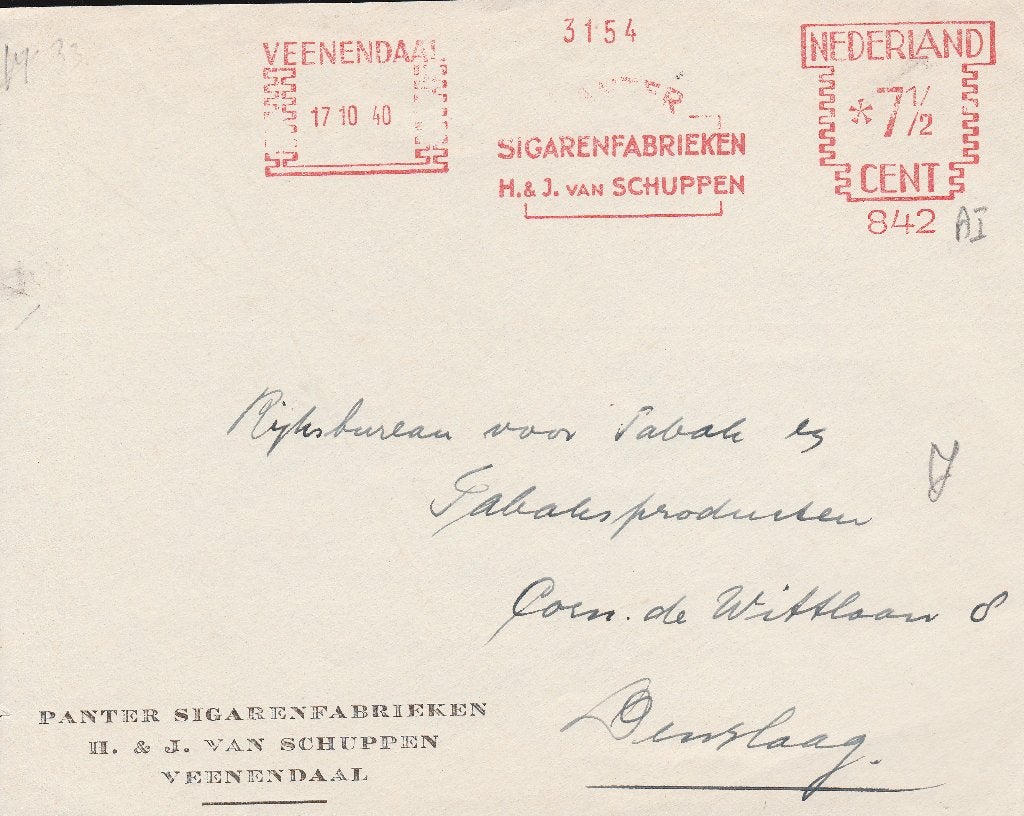 3154
VEENENDAAL
17 10 40
PANTER
SIGARENFABRIEKEN
H. & J. VAN SCHUPPEN
NEDERLAND
*7 1/2
CENT
842 AI
Rijksbureau voor Tabak en
Tabaksproducten
Corn. de Wittlaan 8
Den Haag.
PANTER SIGARENFABRIEKEN
H. & J. VAN SCHUPPEN
VEENENDAAL